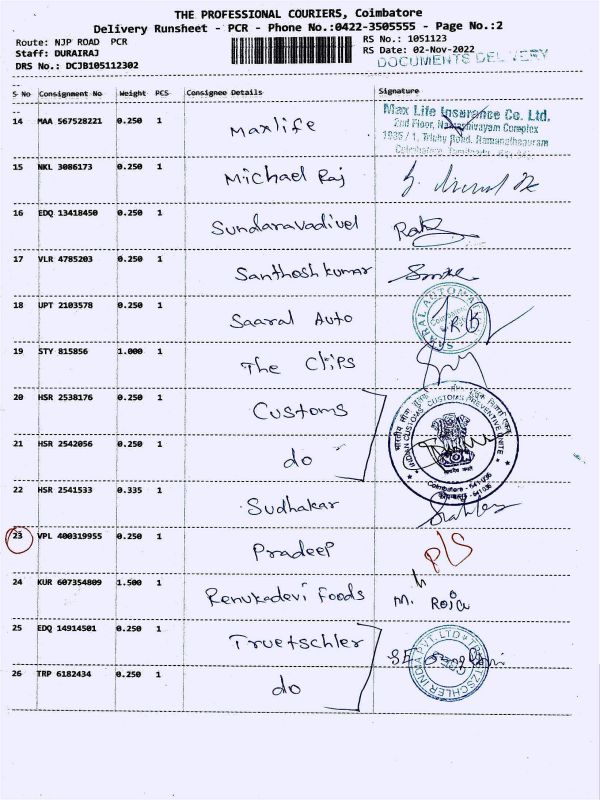 THE PROFESSIONAL COURIERS, Coimbatore
Delivery Runsheet - PCR - Phone No.:0422-3505555 - Page No.:2
Route: NJP ROAD PCR
RS No.: 1051123
Staff: DURAIRAJ
RS Date: 02-Nov-2022
DRS No.: DCJB105112302
DOCUMENTS DELIVERY
S No Consignment No Weight PCS Consignee Details Signature
14 MAA 567528221 0.250 1 Maxlife
Max Life Insurance Co. Ltd.
2nd Floor, Namashivayam Complex
1935 / 1, Trichy Road, Ramanathapuram
15 NKL 3086173 0.250 1 Michael Raj
16 EDQ 13418450 0.250 1 Sundaravadivel
17 VLR 4785203 0.250 1 Santhosh kumar
18 UPT 2103578 0.250 1 Saaral Auto
19 STY 815856 1.000 1 The Chips
20 HSR 2538176 0.250 1 Customs
21 HSR 2542056 0.250 1 do
INDIAN CUSTOMS CUSTOMS PREVENTIVE UNIT
22 HSR 2541533 0.335 1 Sudhakar
23 VPL 400319955 0.250 1 Pradeep P/S
24 KUR 607354809 1.500 1 Renukadevi Foods M. Roja
25 EDQ 14914501 0.250 1 Truetschler
26 TRP 6182434 0.250 1 do